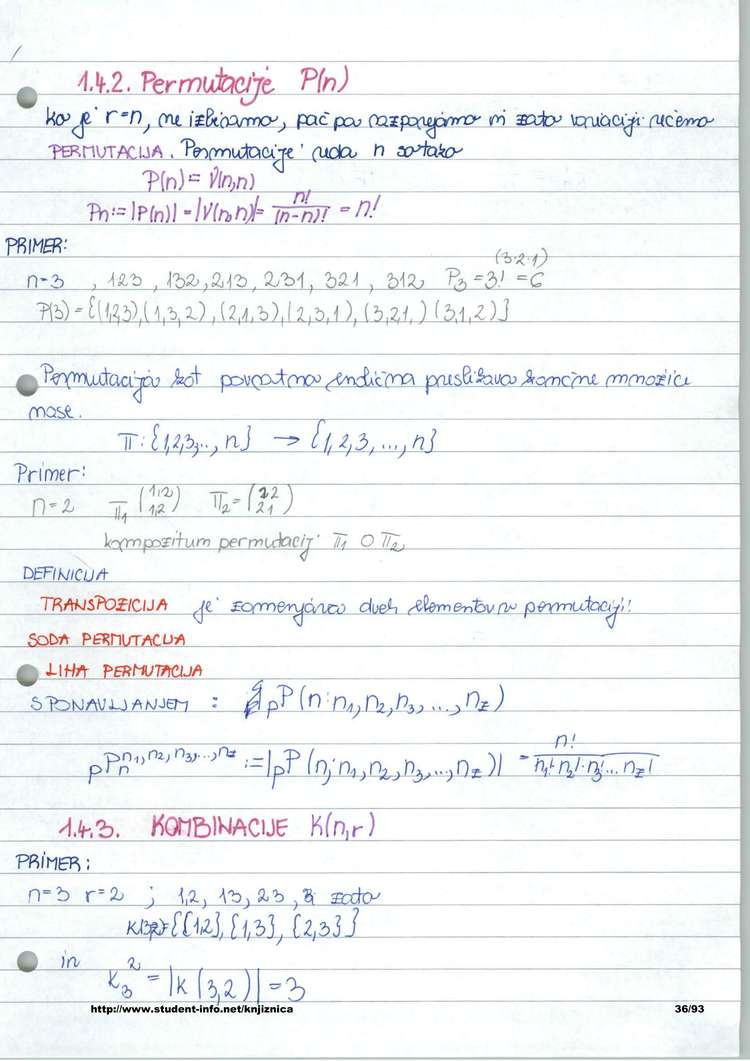 1.4.2. Permutacije P(n)
Ko je r=n, ne izbiramo, pač pa razporejamo in zato variaciji rečemo
PERMUTACIJA. Permutacije reda n so tako
P(n) = V(n,n)
Pn := |P(n)| = |V(n,n)| = n!/(n-n)! = n!
PRIMER:
(3·2·1)
n=3 , 123 , 132, 213, 231, 321, 312 P₃ = 3! = 6
P(3) = {(1,2,3), (1,3,2), (2,1,3), (2,3,1), (3,2,1,) (3,1,2)}
Permutacija kot povratna enolična preslikava končne množice
nase.
π: {1,2,3,.., n} → {1,2,3,..., n}
Primer:
n=2 π₁ (1,2 / 1,2) π₂ = (12 / 21)
kompozitum permutacij π₁ O π₂
DEFINICIJA
TRANSPOZICIJA je zamenjava dveh elementov v permutaciji!
SODA PERMUTACIJA
LIHA PERMUTACIJA
S PONAVLJANJEM : pP(n: n₁, n₂, n₃, ..., n_z)
pPₙ^{n₁, n₂, n₃,..., n_z} := |pP(n; n₁, n₂, n₃, ..., n_z)| = n!/(n₁!·n₂!·n₃!... n_z!)
1.4.3. KOMBINACIJE K(n,r)
PRIMER:
n=3 r=2 ; 1,2, 13, 23, zato
K(3,2)={{1,2}, {1,3}, {2,3}}
in K₃² = |K(3,2)| = 3
http://www.student-info.net/knjiznica 36/93